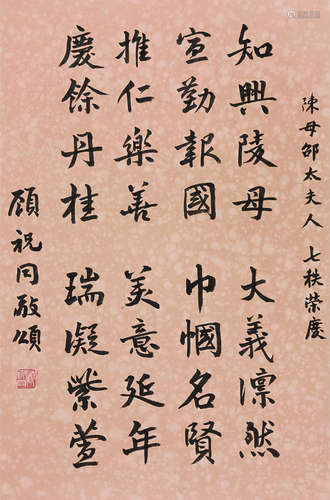 陳母邵太夫人七秩榮慶
知興陵母 大義凜然
宣勤報國 巾幗名賢
推仁樂善 美意延年
慶餘丹桂 瑞凝紫萱
顧祝同敬頌